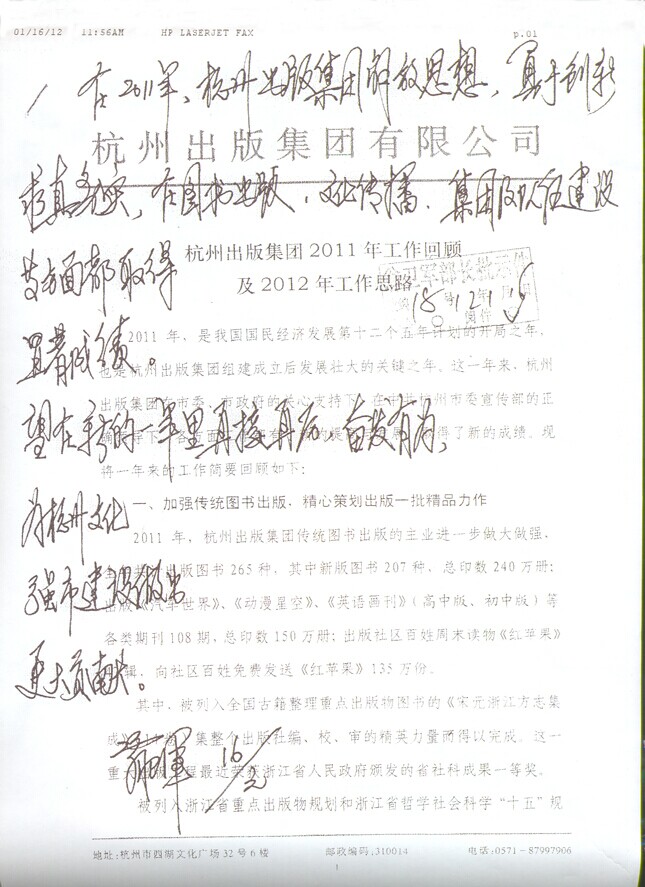 01/16/12 11:56AM HP LASERJET FAX p.01
在2011年,杭州出版集团解放思想,勇于创新
杭州出版集团有限公司
求真务实,在图书出版、文化传播、集团及班子建设
等方面都取得
杭州出版集团2011年工作回顾
及2012年工作思路
显著成绩。
2011年,是我国国民经济发展第十二个五年计划的开局之年,
也是杭州出版集团组建成立后发展壮大的关键之年。这一年来,杭州
出版集团在市委、市政府的关心支持下,在中共杭州市委宣传部的正
望在新的一年里再接再厉,奋发有为,
得了新的成绩。现
将一年来的工作简要回顾如下:
一、加强传统图书出版,精心策划出版一批精品力作
为杭州文化
2011年,杭州出版集团传统图书出版的主业进一步做大做强,
出版图书265种,其中新版图书207种,总印数240万册;
强市建设做出
出版《汽车世界》、《动漫星空》、《英语画刊》(高中版、初中版)等
各类期刊108期,总印数150万册;出版社区百姓周末读物《红苹果》
辑,向社区百姓免费发送《红苹果》135万份。
更大贡献。
其中,被列入全国古籍整理重点出版物图书的《宋元浙江方志集
成》集整个出版社编、校、审的精英力量而得以完成。这一
重大 程最近荣获浙江省人民政府颁发的省社科成果一等奖。
16/2
被列入浙江省重点出版物规划和浙江省哲学社会科学“十五”规
地址:杭州市西湖文化广场32号6楼 邮政编码:310014 电话:0571-87997906
1